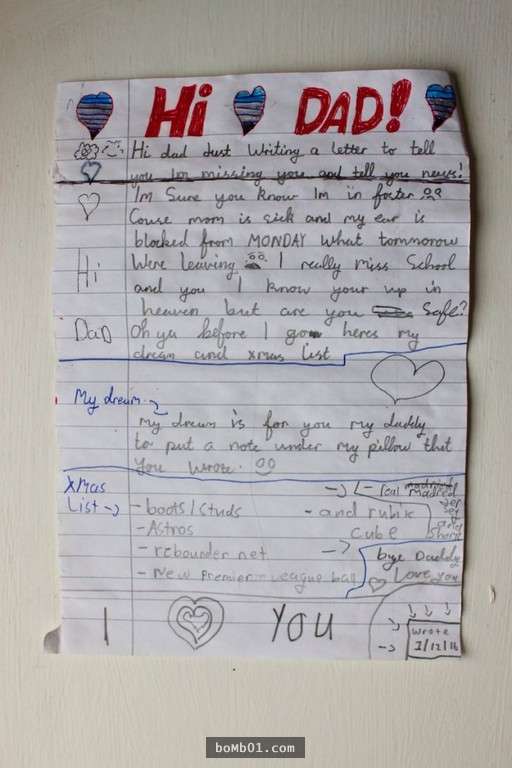 Hi DAD!
Hi dad Just Writing a letter to tell
you Im missing you and tell you news!
Im Sure you know Im in foster
Couse mom is sick and my ear is
blocked from MONDAY What tommorow
Hi
Were leaving I really miss School
and you I know your up in
heaven but are you Safe?
DaD
Oh ya before I go heres my
dream and xmas list
My dream
my dream is for you my daddy
to put a note under my pillow that
you wrote.
Xmas
List
- boots/studs
- Astros
- rebounder net
- New Premier League ball
- and rubix
cube
- real madrid
bye Daddy
Love you
I YOU
wrote
1/12/16
boMb01.com